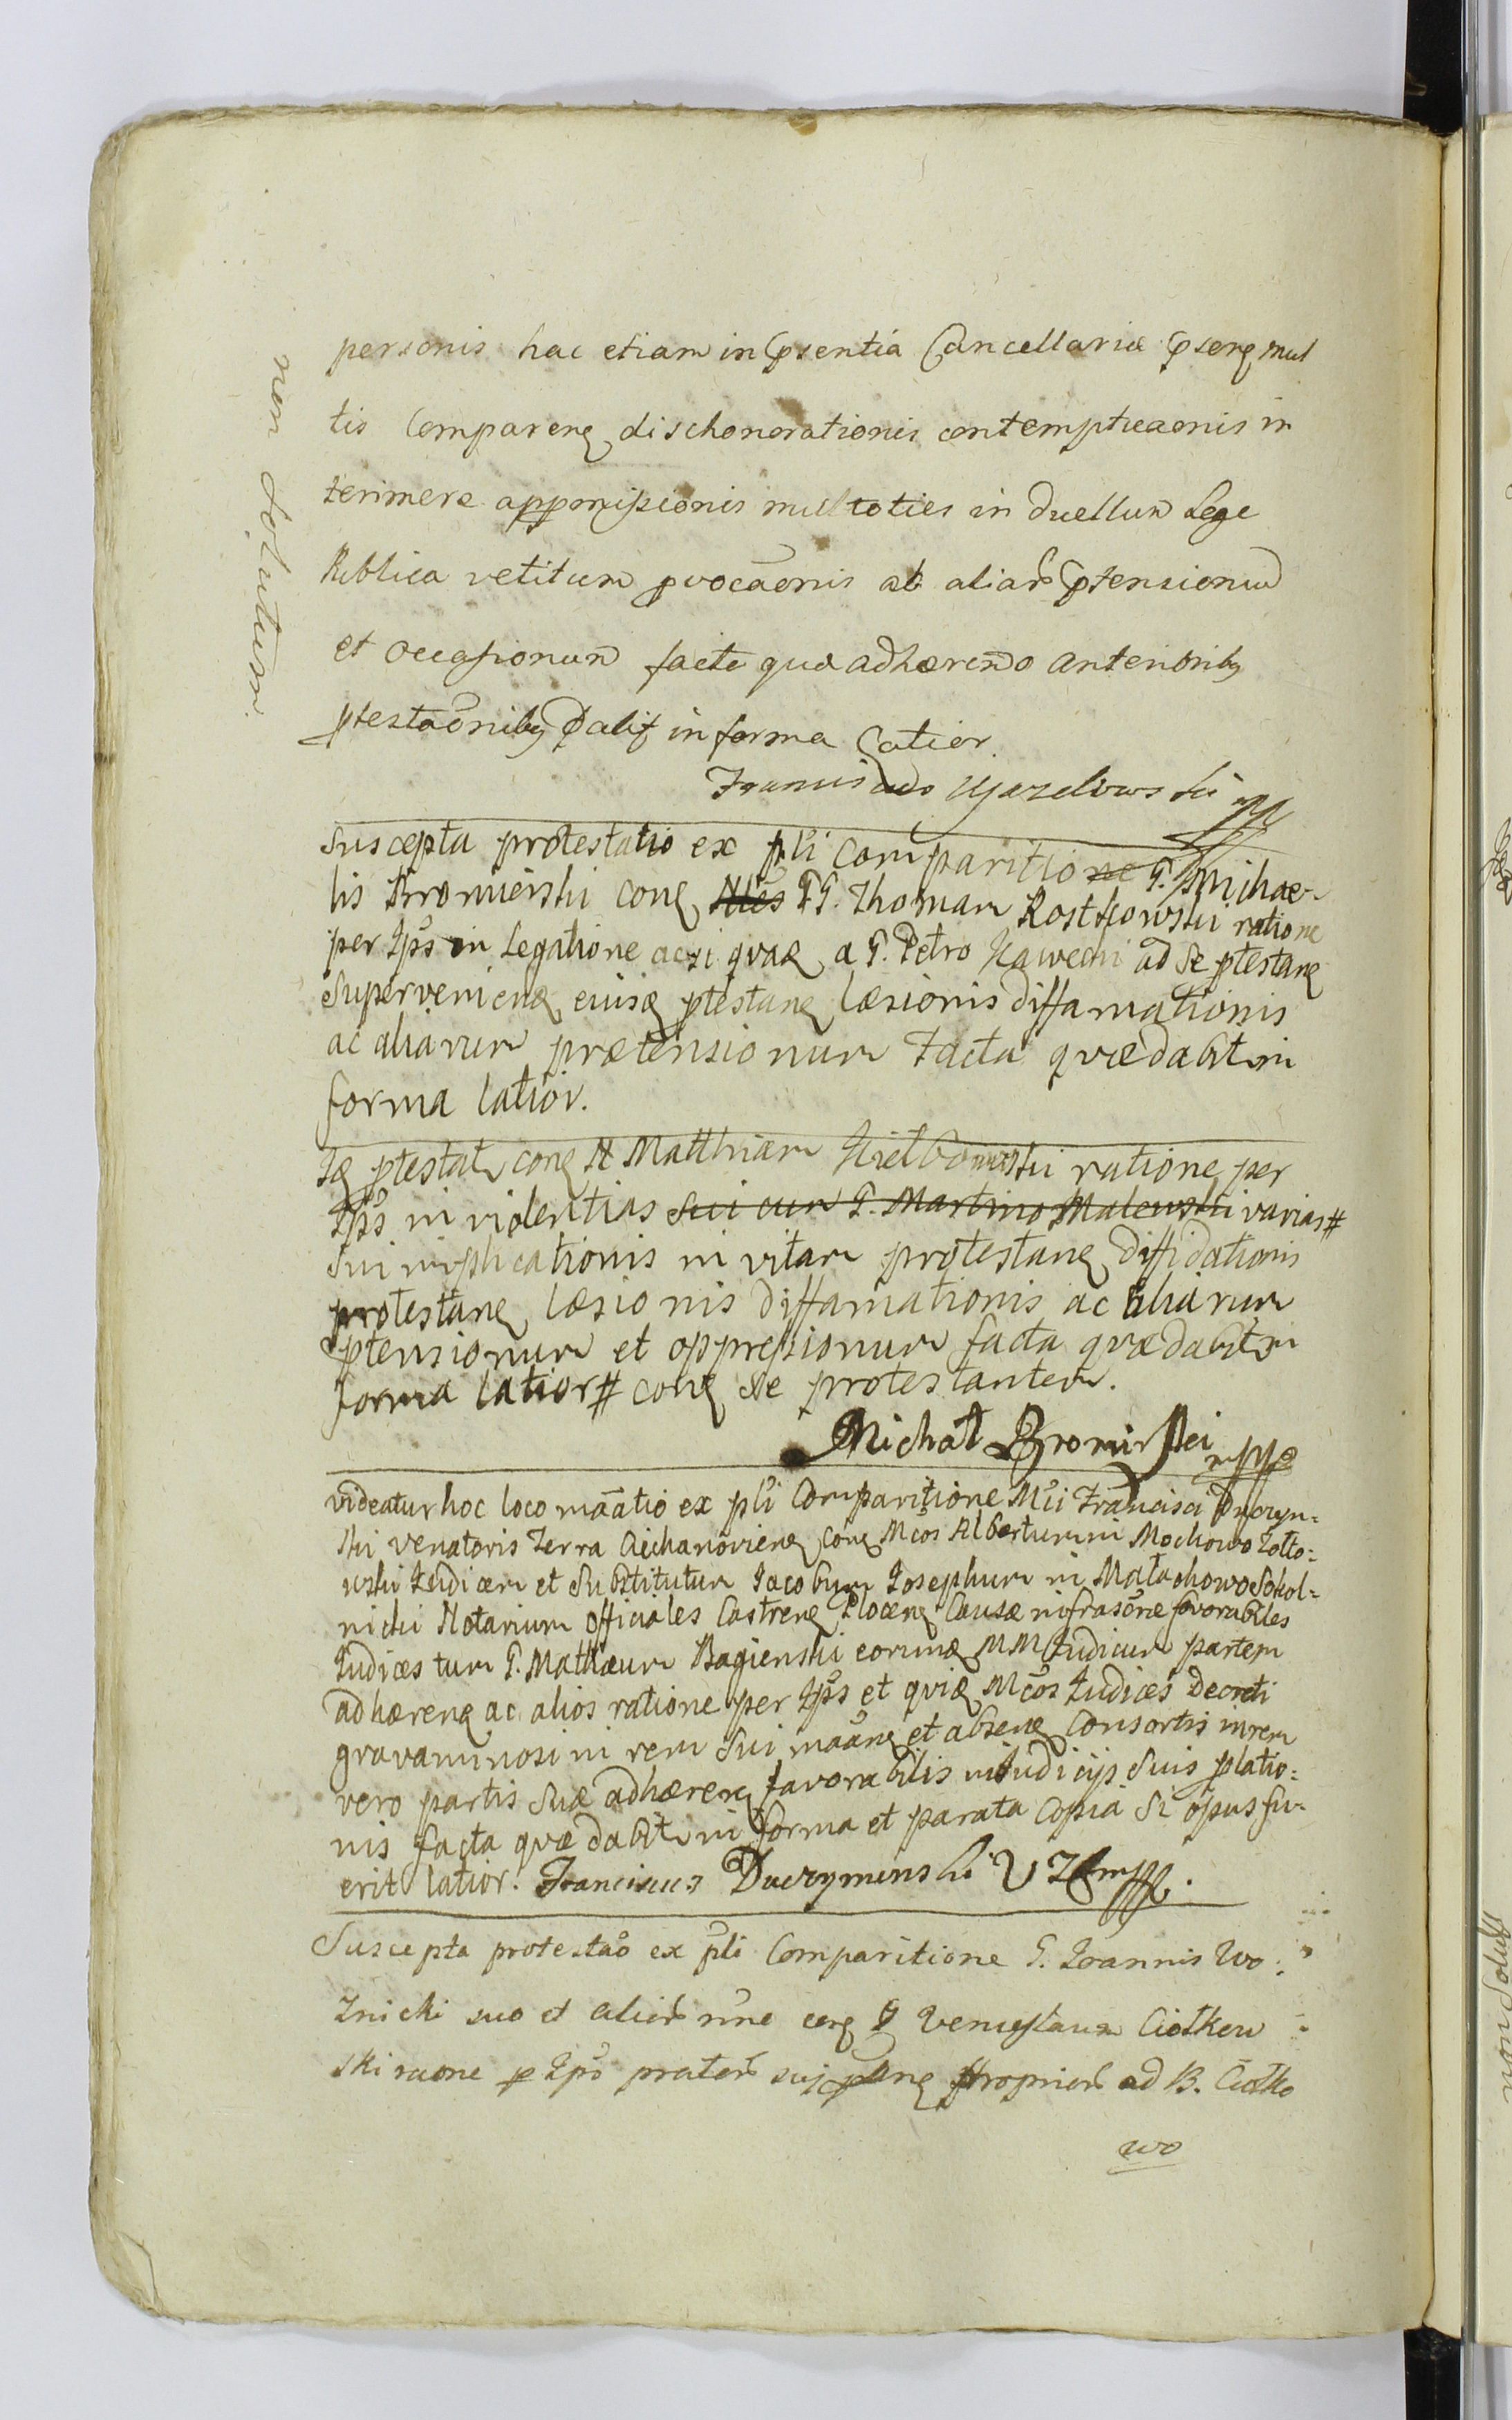 non solutum
personis hac etiam in psentia Cancellariæ pserq mul
tis Comparenq dischonorationis contempticaonis in
terimere appromissionis multoties in Duellum Lege
Publica vetitum pvocaonis ab aliar ptensionum
et occasionum facte quæ adhærendo anteriorib9
ptestaõnib9 Dabit in forma Latior.
Franciscus mp
Suscepta protestatio ex pli comparitione G. Michae-
lis Bromierski conq Nles GG. Thomam Rostkowski ratione
per Ips in Legatione acsi quaq a G. Petro Haweckì ad Se ptestanq
Supervenienq eiusq ptestanq læsionis diffamationis
ac aliarum prætensionum facta quæ dabit in
forma latior.
Iq ptestat conq N Matthiam ratione per
Ips in violentias Sui cum G. Martino Malewski varias #
Sui implicationis in vitam protestanq diffidationis
protestanq læsionis diffamationis ac aliarum
ptensionum et oppressionum facta quæ dabit in
forma latior # conq se protestantem.
Michał Bromirski mpp
videatur hoc loco maãtio ex pli Comparitione Mci Francisci Duczym=
ski venatoris Terra Ciechanovienq conq Mcos Albertum in Mochowo Zołto=
wski Iudicem et Substitutum Iacobum Iosephum in Małachowo Sokol=
nicki Notarium officiales Castrenq Plocenq Causæ infrasõnæ favorabiles
Iudices tum G. Mathæum Bagienski eorumq MM Iudicum partem
adhærenq ac alios ratione per Ips et quiq Mcos Iudices Decreti
gravaminosi in rem Sui maãnq et absenq Consortis in rem
vero partis Suæ adhærenq favorabilis in Iudicijs Suis platio=
nis facta quæ dabit in forma et parata Copia Si opus fu-
erit latior. Franciscus Duczyminski V Z C mpp.
Suscepta protestaõ ex pli Comparitione G. Ioannis Wo:
znicki suo et alior nne conq G Venceslaum Ciołkow
ski raone p Ips prator suj panq proprior ad B. Ciołko
wo